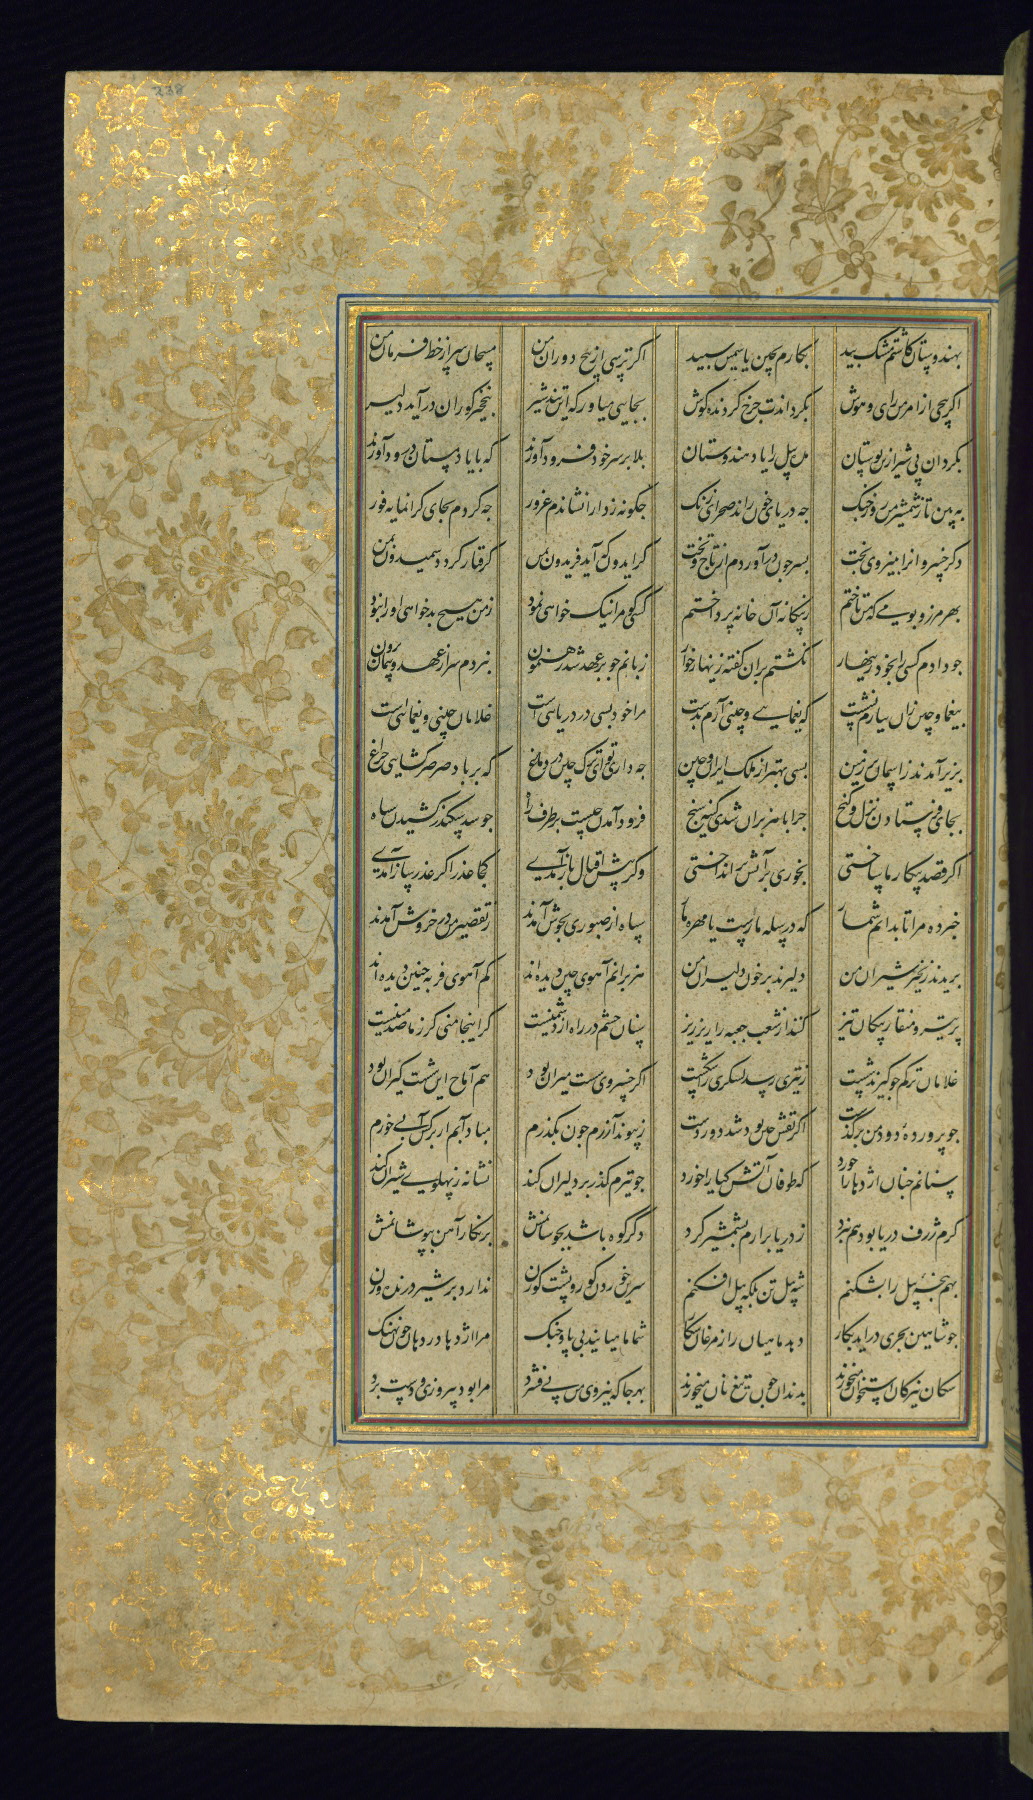 238
بهندوستان کاشتم مشک بید بکارم بچین یاسمین سپید اکر ترسی از پیچ دوران من مپیچان سر از خط فرمان من
اکر پیچی از امر من رای و هوش بکرداندت چرخ کردنده کوش بجایی میاور که این تند شیر بنخچیر کوران درآید دلیر
بکردان پی شیر ازین بوستان مده پیل را یاد هندوستان بلا بر سر خود فرود آورند که با یاد مستان سرود آورند
به بین تا ز شمشیر من روز جنک چه دریای خون راند صحرای زنک چکونه ز دارا نشاندم غرور چه کردم بجای کرانمایه فور
دکر خسروانرا به نیروی بخت بسر چون درآوردم از تاج و تخت کر ایدون که آید فریدون بمن کرفتار کردد همیدون بمن
بهر مرز و بومی که من تاختم ز بیکانه آن خانه پرداختم کسی کو مرا نیک خواهی نمود ز من هیچ بدخواهی او را نبود
چو دادم کسی را بخود زینهار نکشتم بر آن کفته زینهار خوار زبانم چو بر عهد شد رهنمون نبردم سر از عهد و پیمان برون
بیغما و چین زان نیارم نشست که یغمایی و چینی آرم بدست مرا خود بسی در دریایی است غلامان چینی و یغمایی است
بزیر آمدند ز اسمان بر زمین بسی بهتر از ملک ایران و چین چه داری تو ای ترک چین در دماغ که بر باد صرصر کشایی چراغ
بجای فرستادن نزل و کنج چرا با هزبران شدی کینه سنج فرود آمدن چیست بر طرف راه چو سد سکندر کشیدن سپاه
اکر قصد پیکار ما ساختی بخوری بر آتش سر انداختی وکر پیش اقبال باز آمدی کجا عذر اکر عذر ساز آمدی
خبر ده مرا تا بدانم شمار که در سله مارست یا مهره مار سپاه از صبوری بجوش آمدند ز تقصیر من در خروش آمدند
بریدند زنجیر شیران من دلیرند بر خون دلیران من هزبرانم آهوی چین دیده اند کم آهوی فربه چنین دیده اند
پر تیر و منقار پیکان تیز کنند از شغب جعبه را ریز ریز سنان چشم در راه از دشمنیست کر اینجا منی کرز ما صد منیست
غلامان ترکم چو کیرند شست ز تیری رسد لشکری را شکست اکر خسروی تست میران بود هم آماج این شست کیران بود
چو پرورده دود من درکذشت اکر تفش حین بود شد دوردست ز پیوند آزرم چون بکذرم مبادآبم ار برکس آبی خورم
سنانم چنان اژدها را خورد که طوفان آتش کیا را خورد چو تیرم کذر بر دلیران کند نشانه ز پهلوی شیران کند
کرم ژرف دریا بود هم نبرد ز دریا برارم بشمشیر کرد دکر کوه باشد بجوشانمش به زنکار آهن بپوشانمش
بهم پنجه پیل را بشکنم شه پیل تن بلکه پیل افکنم سرین خوردن کور و پشت کوزن ندارد بر شیر درنده وزن
چو شاهین بحری دراید بکار دهد ماهیان را ز مرغان شکار شما ماهیانید بی پا و چنک مرا اژدها در دهان چون نهنک
سکان نیزکان استخوان میخورند بدندان چون تیغ نان میخورند بهر جا که نیروی من پی فشرد مرا بود پیروزی و دست برد